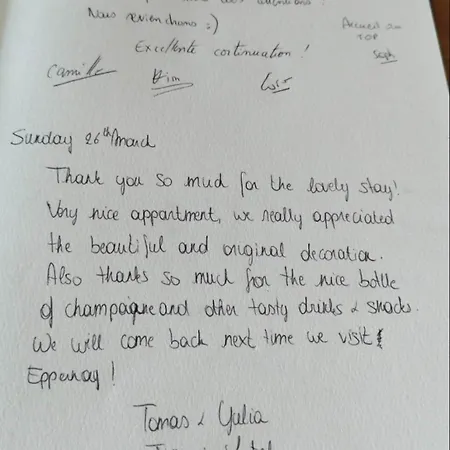 Nous reviendrons :)
Accueil au
TOP
Excellente continuation !
Soph
Camille
Kim
Sunday 26th March
Thank you so much for the lovely stay!
Very nice appartment, we really appreciated
the beautiful and original decoration.
Also thanks so much for the nice bottle
of champaigne and other tasty drinks & snacks.
We will come back next time we visit
Eppernay!
Tomas & Yulia